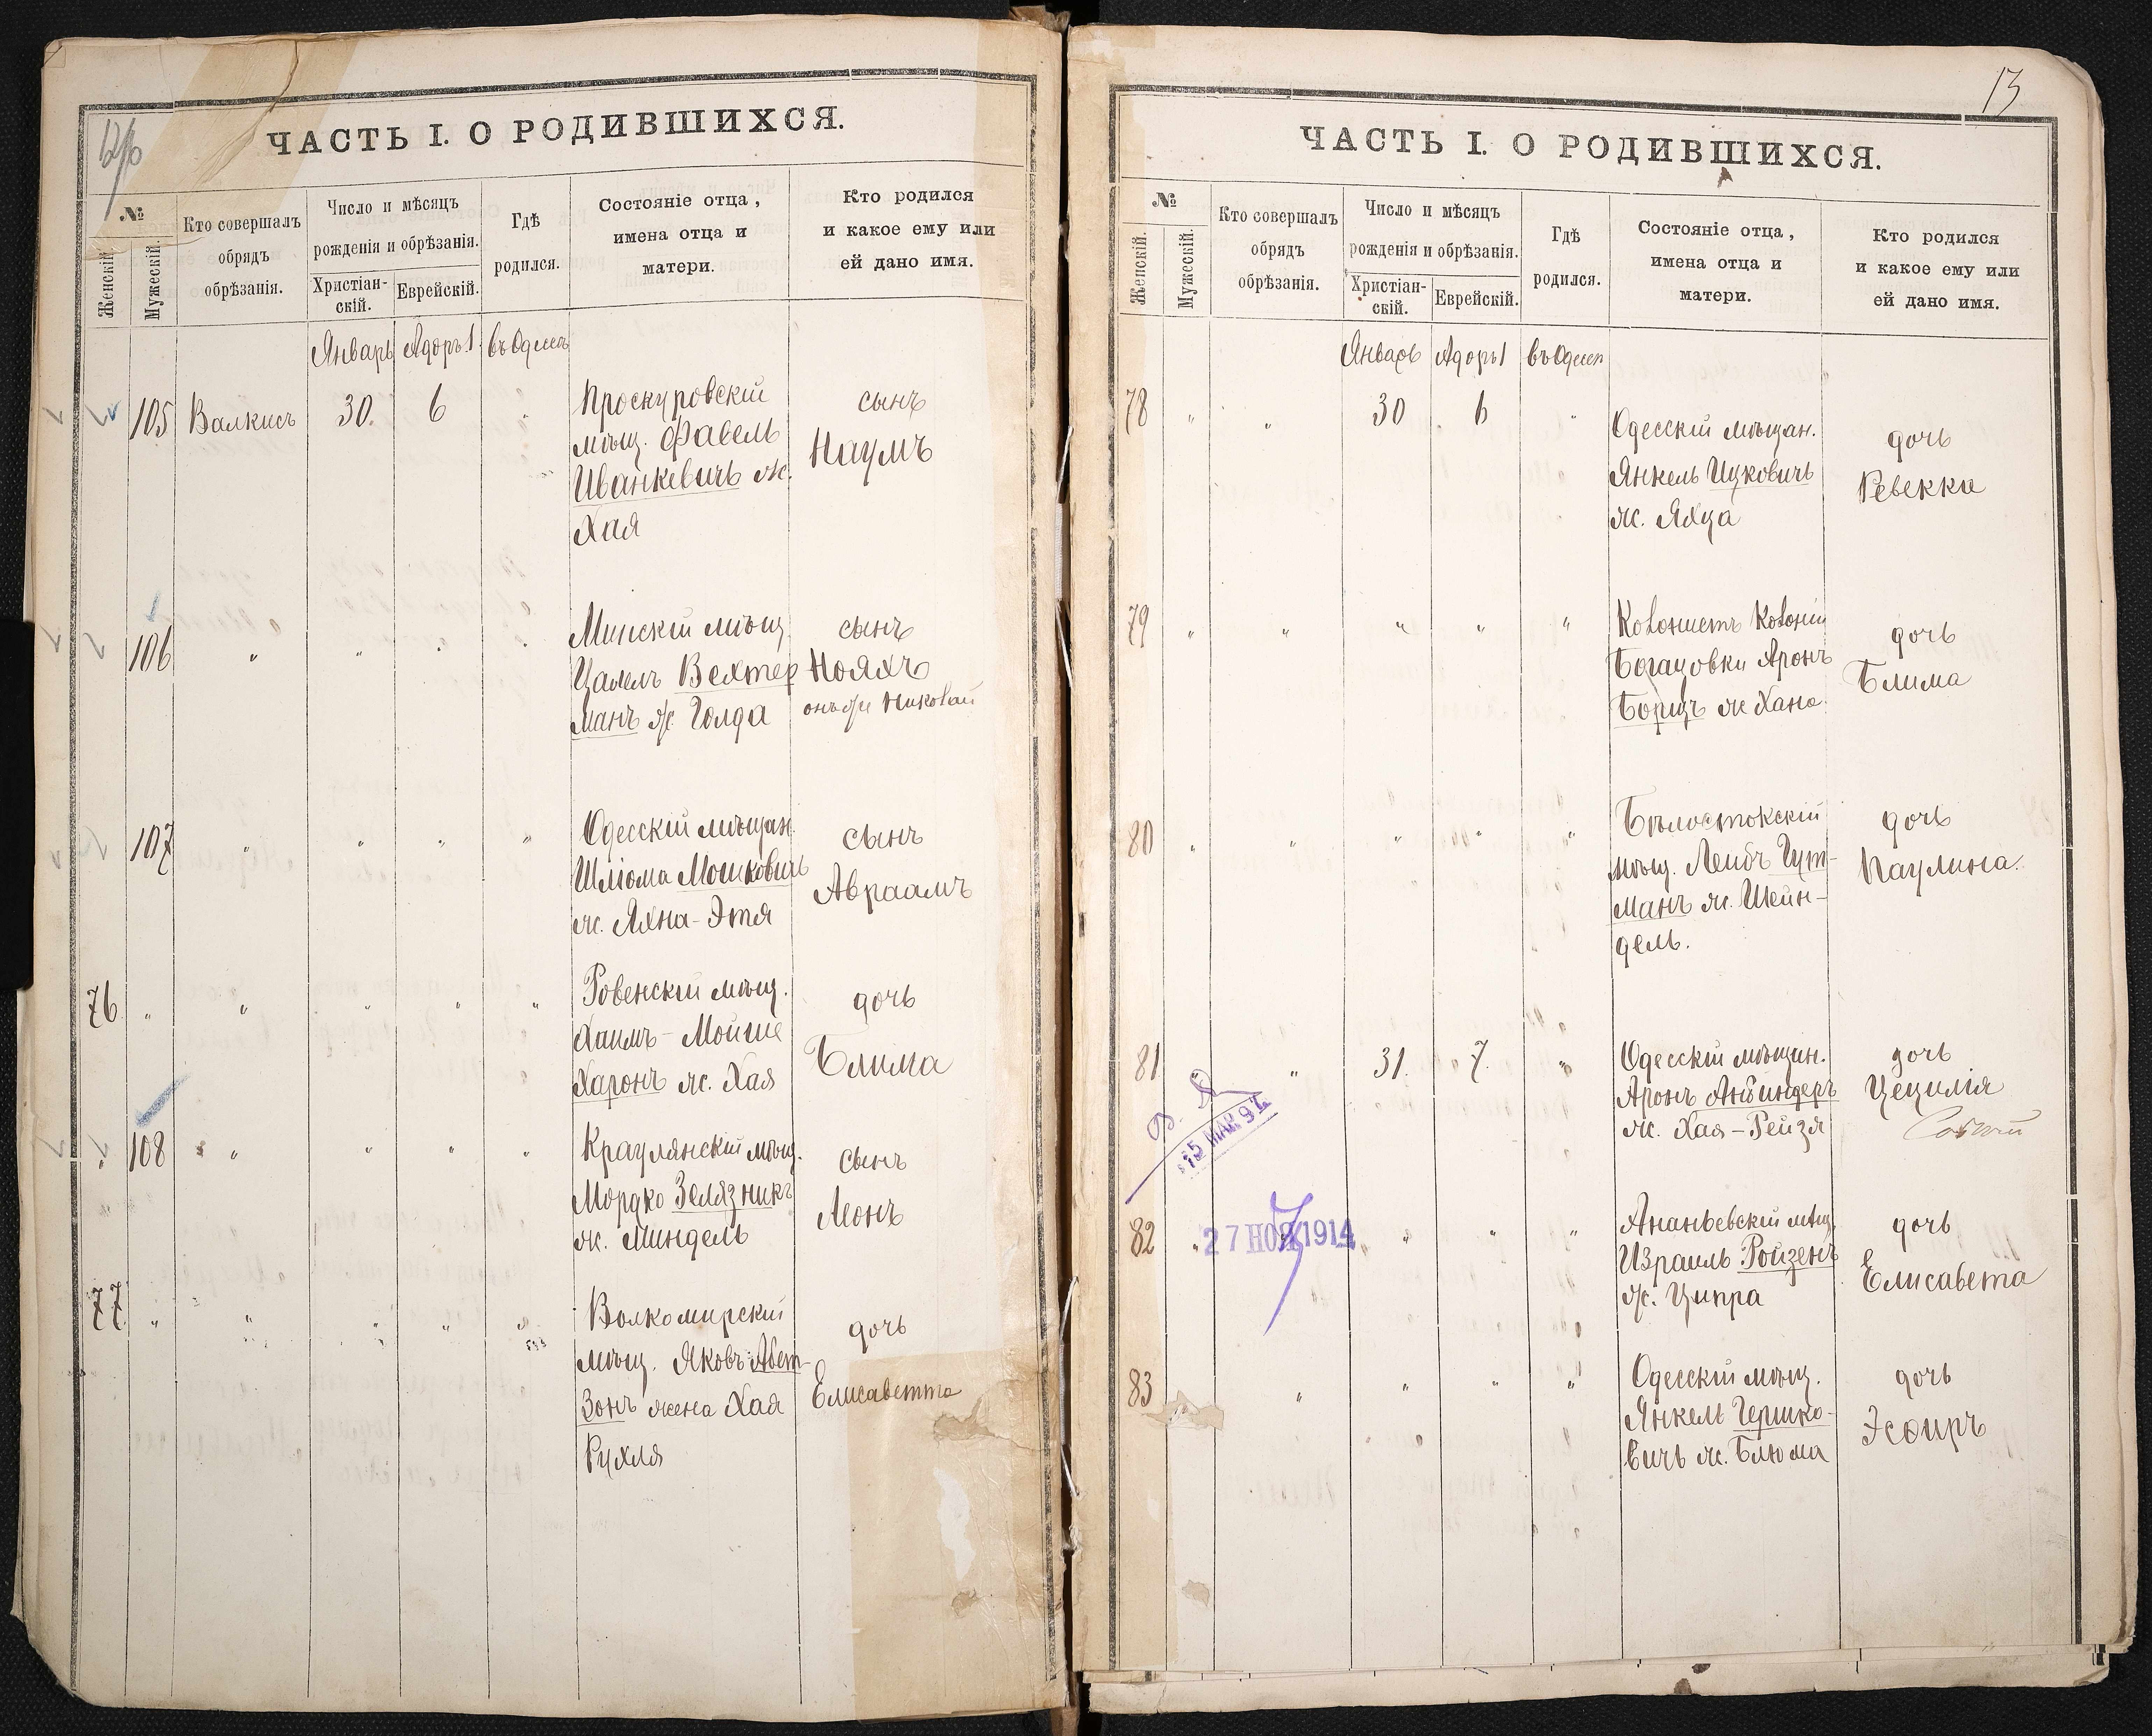 ЧАСТЬ I. О РОДИВШИХСЯ.
№
Женскій.
Мужескій.
Кто совершалъ
обрядъ
обрѣзанія.
Число и мѣсяцъ
рожденія и обрѣзанія.
Христіан-
скій.
Еврейскій.
Гдѣ
родился.
Состояніе отца,
имена отца и
матери.
Кто родился
и какое ему или
ей дано имя.
Январь Адоръ 1 въ Одессѣ
105 Валкисъ 30. 6 " Проскуровскій сынъ
мѣщ. Фавель Наумъ
Иванкевичъ ж.
Хая
106 " " " " Минскій мѣщ. сынъ
Цалель Вехтер Нояхъ
манъ ж. Голда онъ же Николай
107 " " " " Одесскій мѣщан. сынъ
Шліома Мошковичъ Авраамъ
ж. Яхна-Этя
76 " " " " " Ровенскій мѣщ. дочь
Хаимъ-Мойше Блима
Харонъ ж. Хая
" 108 " " " " мѣщ. сынъ
Мордко Зелязникъ Леонъ
ж. Миндель
77 " " " " " Волкомирскій дочь
мѣщ. Яковъ Елисаветта
зонъ жена Хая
Рухля
13
ЧАСТЬ I. О РОДИВШИХСЯ.
№
Женскій.
Мужескій.
Кто совершалъ
обрядъ
обрѣзанія.
Число и мѣсяцъ
рожденія и обрѣзанія.
Христіан-
скій.
Еврейскій.
Гдѣ
родился.
Состояніе отца,
имена отца и
матери.
Кто родился
и какое ему или
ей дано имя.
Январь Адоръ 1 въ Одессѣ
78 " " 30 6 " Одесскій мѣщан. дочь
Янкель Ицковичъ Ревекка
ж. Яхца
79 " " " " " Колонистъ Колоніи дочь
Аронъ Блима
ж Хана
80 " " " " " Бѣлостокскій дочь
мѣщ. Лейбъ Гут- Паулина.
манъ ж. Шейн-
дель.
81 " " 31. 7. " Одесскій мѣщан. дочь
Аронъ Цецилія
ж. Хая-Рейзя
15 МАР 97
82 " " " " Ананьевскій мѣщ. дочь
27 НОЯ 1914
Израиль Ройзенъ Елисавета
ж. Ципра
83 " " " " Одесскій мѣщ. дочь
Янкель Гершко- Эсѳиръ
вичъ ж. Блюма